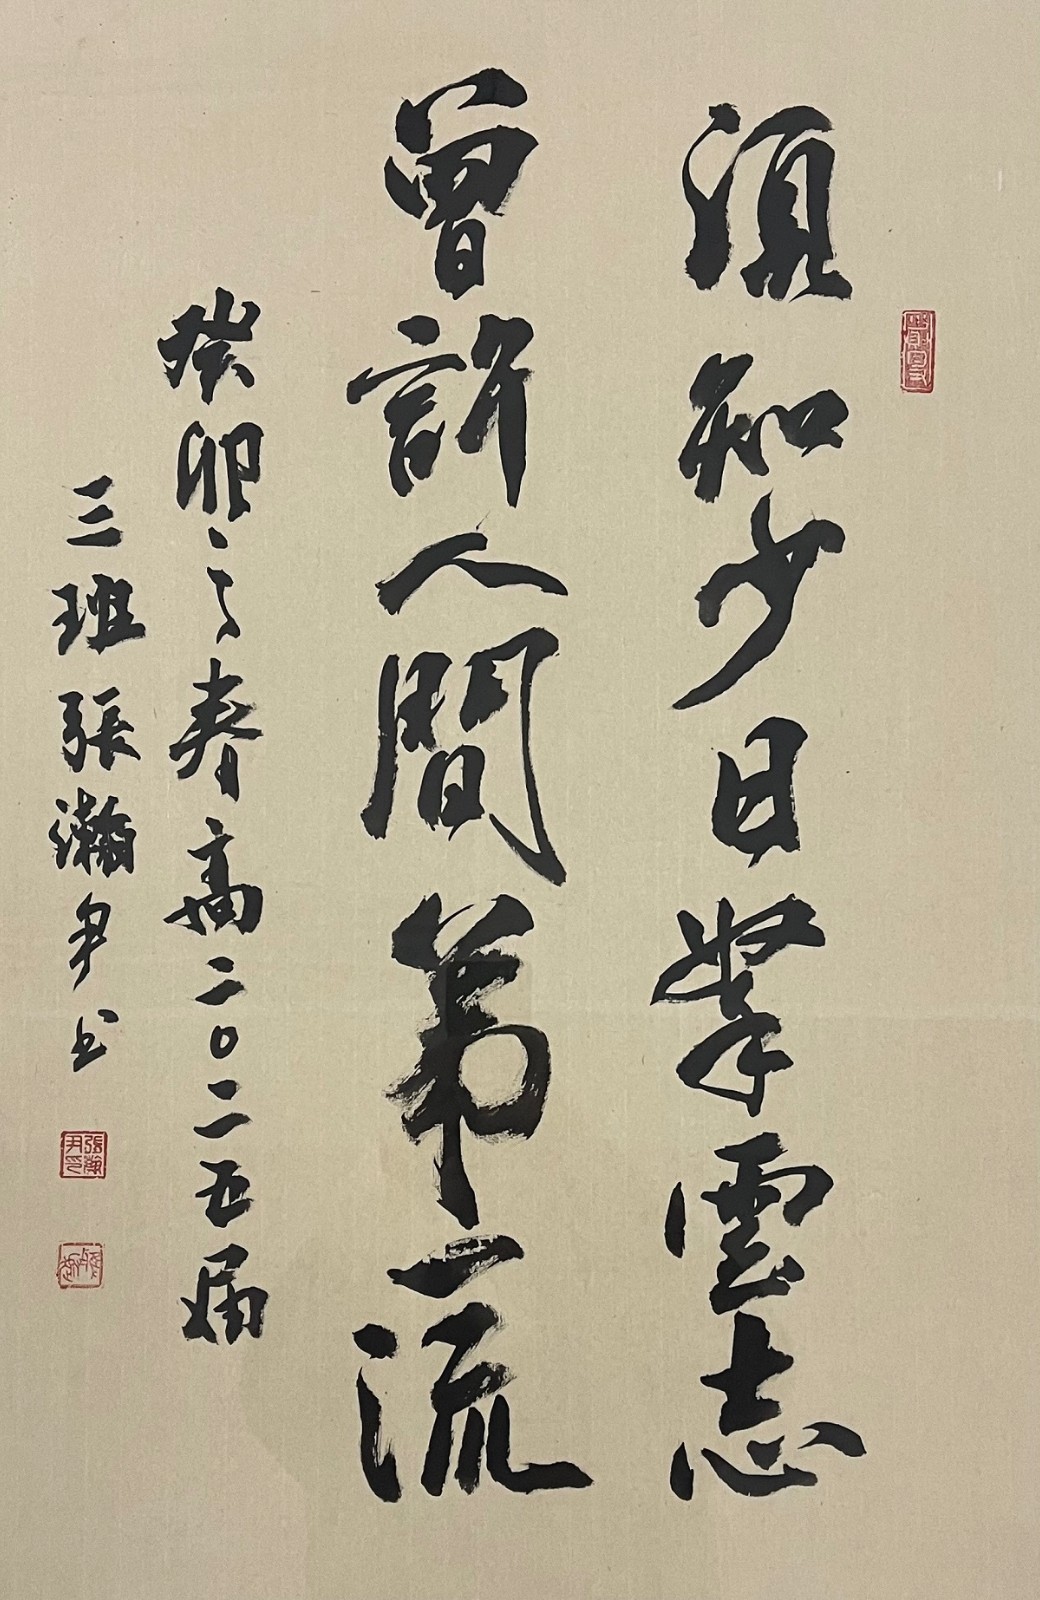 須知少日拏雲志
曾許人間第一流
癸卯之春高二〇二五届
三班張瀚尹书
張瀚尹印